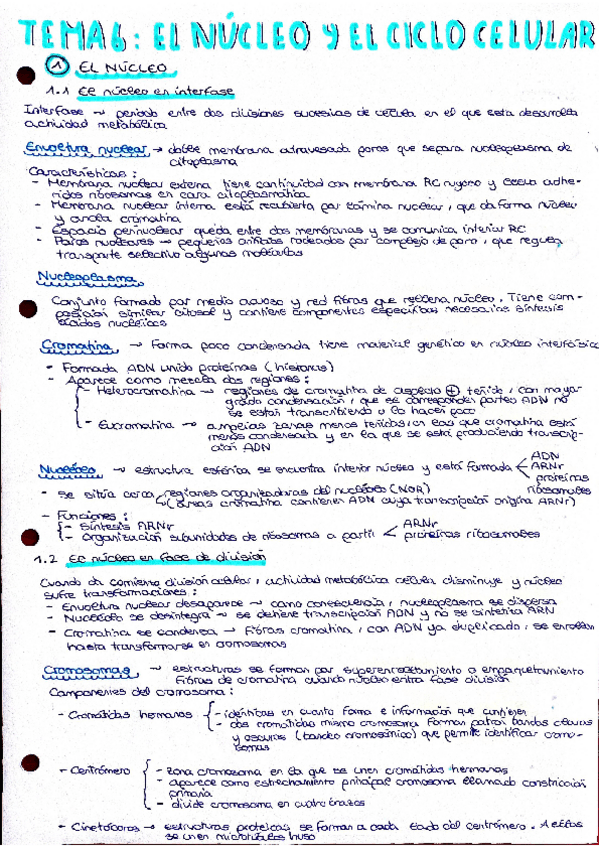 TEMA 6: EL NÚCLEO Y EL CICLO CELULAR
① EL NÚCLEO
1.1 El núcleo en interfase
Interfase → periodo entre dos divisiones sucesivas de célula en el que esta desarrolla
actividad metabólica
Envoltura nuclear → doble membrana atravesada poros que separa nucleoplasma de
citoplasma
Características:
- Membrana nuclear externa tiene continuidad con membrana RE rugoso y lleva adhe-
ridos ribosomas en cara citoplasmática
- Membrana nuclear interna está recubierta por lámina nuclear, que da forma núcleo
y ancla cromatina
- Espacio perinuclear queda entre dos membranas y se comunica interior RE
- Poros nucleares → pequeños orificios rodeados por complejo de poro, que regula
transporte selectivo algunas moléculas
Nucleoplasma
Conjunto formado por medio acuoso y red fibras que rellena núcleo. Tiene com-
posición similar citosol y contiene componentes específicos necesarios síntesis
ácidos nucleicos
Cromatina → Forma poco condensada tiene material genético en núcleo interfásico
- Formada ADN unido proteínas (histonas)
- Aparece como mezcla dos regiones:
- Heterocromatina → regiones de cromatina de aspecto ⊕ teñido, con mayor
grado condensación, que se corresponden partes ADN no
se están transcribiendo o lo hacen poco
- Eucromatina → amplias zonas menos teñidas, en las que cromatina está
menos condensada y en la que se está produciendo transcrip-
ción ADN
Nucléolo → estructura esférica se encuentra interior núcleo y está formada ADN
ARNr
proteínas
ribosomales
- Se sitúa cerca regiones organizadoras del nucléolo (NOR)
(áreas cromatina contienen ADN cuya transcripción origina ARNr)
- Funciones:
- Síntesis ARNr
- Organización subunidades de ribosomas a partir ARNr
proteínas ribosomales
1.2 El núcleo en fase de división
Cuando da comienzo división celular, actividad metabólica celular disminuye y núcleo
sufre transformaciones:
- Envoltura nuclear desaparece → como consecuencia, nucleoplasma se dispersa
- Nucléolo se desintegra → se detiene transcripción ADN y no se sintetiza ARN
- Cromatina se condensa → Fibras cromatina, con ADN ya duplicado, se enrollan
hasta transformarse en cromosomas
Cromosomas → estructuras se forman por superenrollamiento o empaquetamiento
fibras de cromatina cuando núcleo entra fase división
Componentes del cromosoma:
- Cromátidas hermanas - idénticas en cuanto forma e información que contienen
- dos cromátidas mismo cromosoma forman patrón bandas claras
y oscuras (bandeo cromosómico) que permite identificar cromo-
somas
- Centrómero - zona cromosoma en la que se unen cromátidas hermanas
- aparece como estrechamiento principal cromosoma llamado constricción
primaria
- divide cromosoma en cuatro brazos
- Cinetócoros → estructuras proteicas se forman a cada lado del centrómero. A ellas
se unen microtúbulos huso